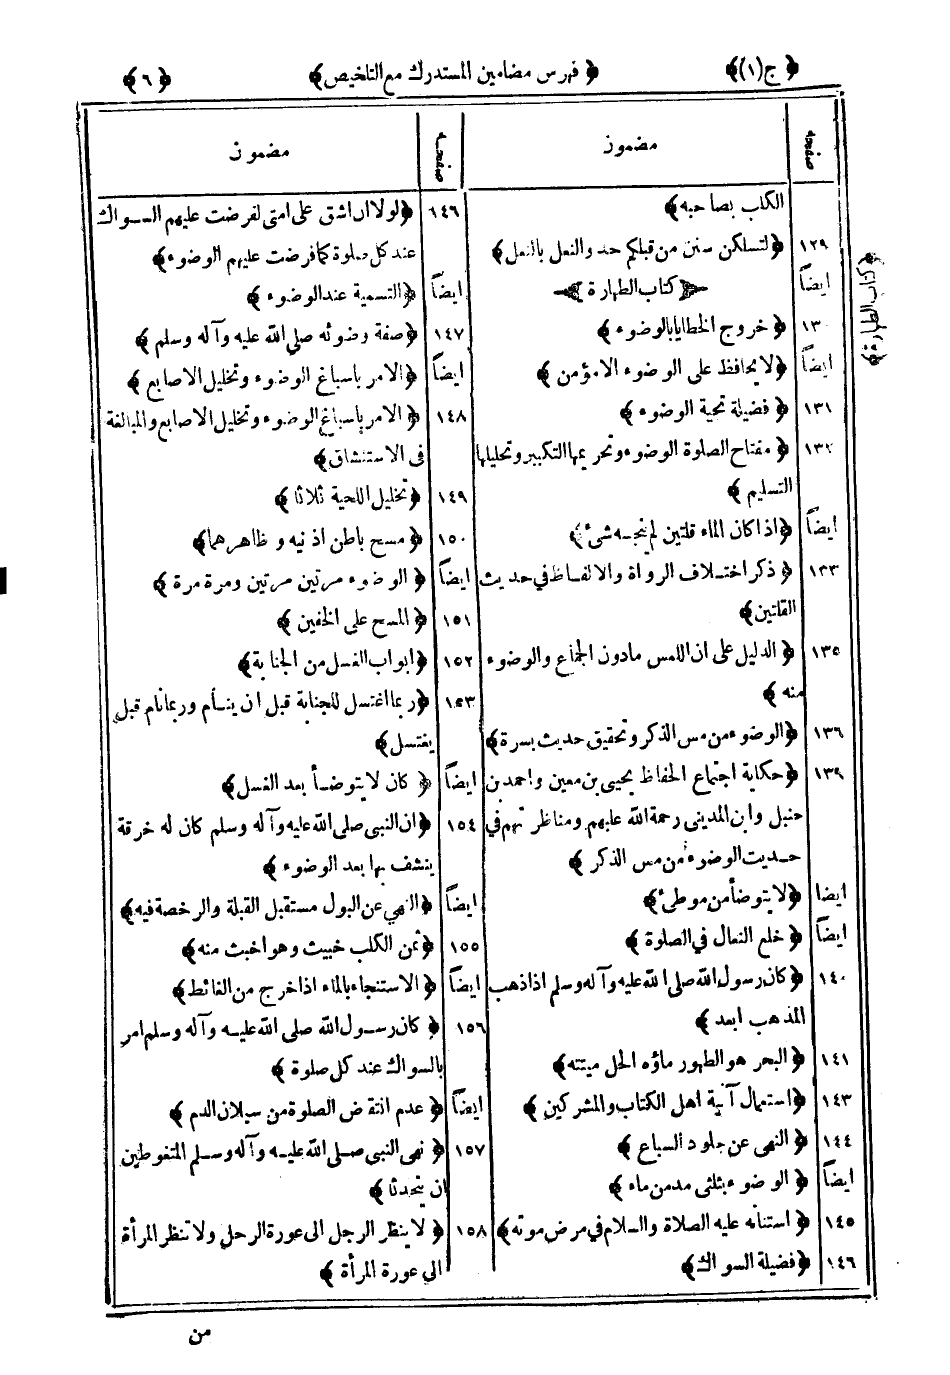 ﴿ ج(١) ﴾ ﴿ فهرس مضامين المستدرك مع التلخيص ﴾ ﴿ ٦ ﴾
صفحه مضمون
الكلب بصاحبه ﴾
١٢٩ ﴿ لتسلكن سنن من قبلكم حذو النعل بالنعل ﴾
ايضاً ﴿ كتاب الطهارة ﴾
١٣٠ ﴿ خروج الخطايا بالوضوء ﴾
ايضاً ﴿ لا يحافظ على الوضوء الا مؤمن ﴾
١٣١ ﴿ فضيلة تحية الوضوء ﴾
١٣٢ ﴿ مفتاح الصلوة الوضوء وتحريمها التكبير وتحليلها
التسليم ﴾
ايضاً ﴿ اذا كان الماء قلتين لم ينجسه شئ ﴾
١٣٣ ﴿ ذكر اختلاف الرواة والالفاظ في حديث
القلتين ﴾
١٣٥ ﴿ الدليل على ان اللمس مادون الجماع والوضوء
منه ﴾
١٣٦ ﴿ الوضوء من مس الذكر وتحقيق حديث بسرة ﴾
١٣٩ ﴿ حكاية اجتماع الحفاظ يحيى بن معين واحمد بن
حنبل وابن المديني رحمة الله عليهم ومناظرتهم في
حديث الوضوء من مس الذكر ﴾
ايضا ﴿ لا يتوضأ من موطئ ﴾
ايضاً ﴿ خلع النعال في الصلوة ﴾
١٤٠ ﴿ كان رسول الله صلى الله عليه وآله وسلم اذا ذهب
المذهب ابعد ﴾
١٤١ ﴿ البحر هو الطهور ماؤه الحل ميتته ﴾
١٤٣ ﴿ استعمال آنية اهل الكتاب والمشركين ﴾
١٤٤ ﴿ النهى عن جلود السباع ﴾
ايضاً ﴿ الوضوء بثلثى مد من ماء ﴾
١٤٥ ﴿ استنانه عليه الصلاة والسلام في مرض موته ﴾
١٤٦ ﴿ فضيلة السواك ﴾
صفحه مضمون
١٤٦ ﴿ لولا ان اشق على امتى لفرضت عليهم السواك
عند كل صلوة كما فرضت عليهم الوضوء ﴾
ايضاً ﴿ التسمية عند الوضوء ﴾
١٤٧ ﴿ صفة وضوئه صلى الله عليه وآله وسلم ﴾
ايضاً ﴿ الامر باسباغ الوضوء وتخليل الاصابع ﴾
١٤٨ ﴿ الامر باسباغ الوضوء وتخليل الاصابع والمبالغة
فى الاستنشاق ﴾
١٤٩ ﴿ تخليل اللحية ثلاثا ﴾
١٥٠ ﴿ مسح باطن اذنيه و ظاهرهما ﴾
ايضاً ﴿ الوضوء مرتين مرتين ومرة مرة ﴾
١٥١ ﴿ المسح على الخفين ﴾
١٥٢ ﴿ ابواب الغسل من الجنابة ﴾
١٥٣ ﴿ ربما اغتسل للجنابة قبل ان ينام وربما نام قبل
يغتسل ﴾
ايضاً ﴿ كان لا يتوضأ بعد الغسل ﴾
١٥٤ ﴿ ان النبى صلى الله عليه وآله وسلم كان له خرقة
ينشف بها بعد الوضوء ﴾
ايضاً ﴿ النهي عن البول مستقبل القبلة والرخصة فيه ﴾
١٥٥ ﴿ ثمن الكلب خبيث وهو اخبث منه ﴾
ايضاً ﴿ الاستنجاء بالماء اذا خرج من الغائط ﴾
١٥٦ ﴿ كان رسول الله صلى الله عليه وآله وسلم امر
بالسواك عند كل صلوة ﴾
ايضاً ﴿ عدم انتقاض الصلوة من سيلان الدم ﴾
١٥٧ ﴿ نهى النبى صلى الله عليه وآله وسلم المتغوطين
ان يتحدثا ﴾
١٥٨ ﴿ لا ينظر الرجل الى عورة الرجل ولا تنظر المرأة
الى عورة المرأة ﴾
﴿ كتاب الطهارة ﴾
من